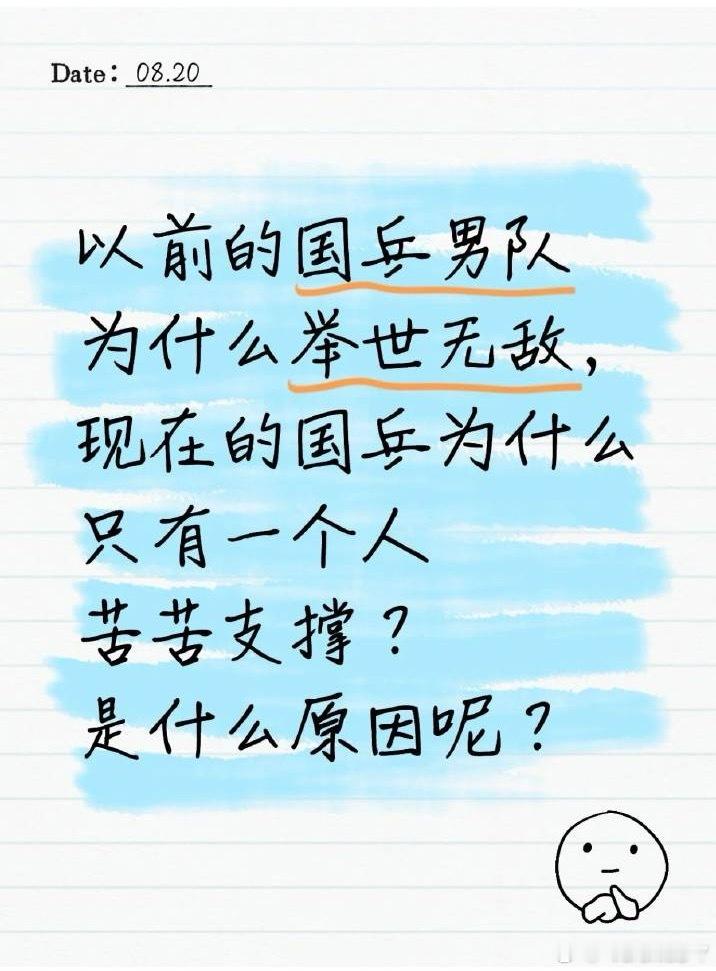 Date: 08.20
以前的国乒男队
为什么举世无敌,
现在的国乒为什么
只有一个人
苦苦支撑?
是什么原因呢?